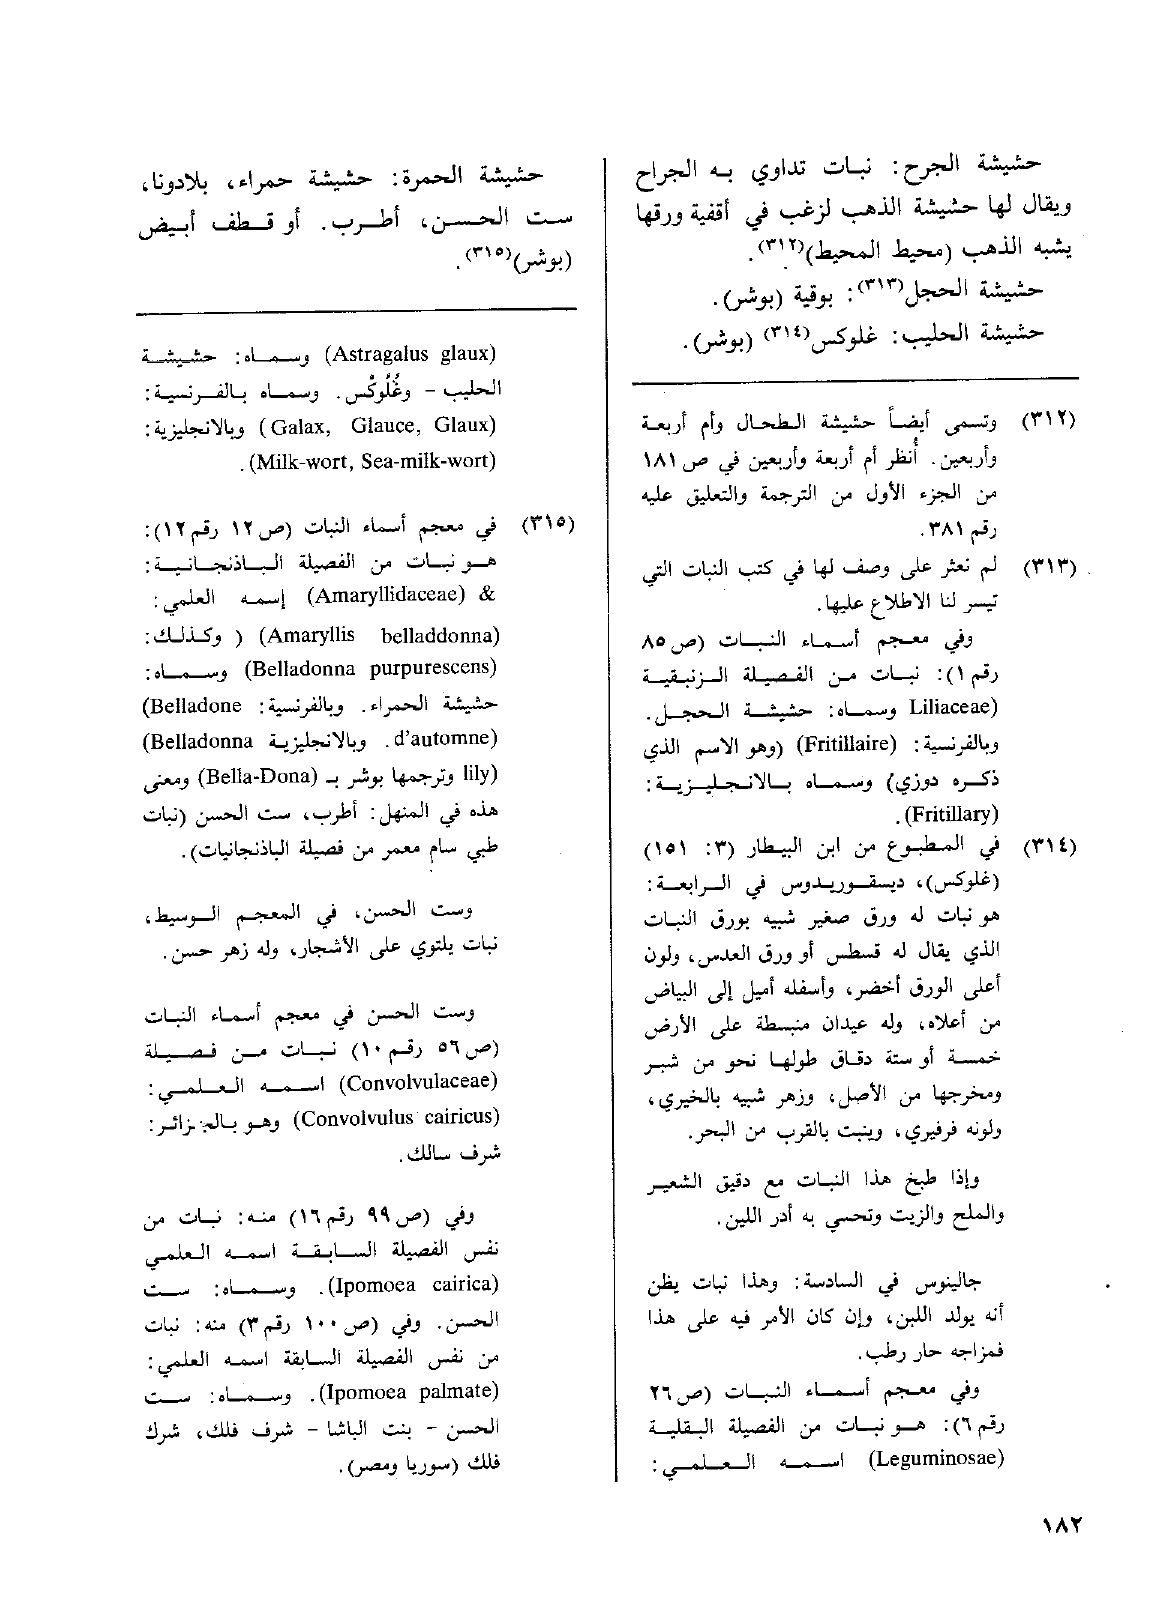 حشيشة الجرح: نبات تداوي به الجراح
ويقال لها حشيشة الذهب لزغب في أقفية ورقها
يشبه الذهب (محيط المحيط)(٣١٢).
حشيشة الحجل(٣١٣): بوقية (بوشر).
حشيشة الحليب: غلوكس(٣١٤) (بوشر).
(٣١٢) وتسمى أيضاً حشيشة الطحال وأم أربعة
وأربعين. أُنظر أم أربعة وأربعين في ص ١٨١
من الجزء الأول من الترجمة والتعليق عليه
رقم ٣٨١.
(٣١٣) لم نعثر على وصف لها في كتب النبات التي
تيسر لنا الاطلاع عليها.
وفي معجم أسماء النبات (ص ٨٥
رقم ١): نبات من الفصيلة الزنبقية
(Liliaceae وسماه: حشيشة الحجل.
وبالفرنسية: (Fritillaire) (وهو الاسم الذي
ذكره دوزي) وسماه بالانجليزية:
(Fritillary).
(٣١٤) في المطبوع من ابن البيطار (٣: ١٥١)
(غلوكس)، ديسقوريدوس في الرابعة:
هو نبات له ورق صغير شبيه بورق النبات
الذي يقال له قسطس أو ورق العدس، ولون
أعلى الورق أخضر، وأسفله أميل إلى البياض
من أعلاه، وله عيدان منبسطة على الأرض
خمسة أو ستة دقاق طولها نحو من شبر
ومخرجها من الأصل، وزهر شبيه بالخيري،
ولونه فرفيري، وينبت بالقرب من البحر.
وإذا طبخ هذا النبات مع دقيق الشعير
والملح والزيت وتحسي به أدر اللبن.
جالينوس في السادسة: وهذا نبات يظن
أنه يولد اللبن، وإن كان الأمر فيه على هذا
فمزاجه حار رطب.
وفي معجم أسماء النبات (ص ٢٦
رقم ٦): هو نبات من الفصيلة البقلية
(Leguminosae) اسمه العلمي:
حشيشة الحمرة: حشيشة حمراء، بلادونا،
ست الحسن، أطرب. أو قطف أبيض
(بوشر)(٣١٥).
(Astragalus glaux) وسماه: حشيشة
الحليب - وغُلُوكُس. وسماه بالفرنسية:
(Galax, Glauce, Glaux) وبالانجليزية:
(Milk-wort, Sea-milk-wort).
(٣١٥) في معجم أسماء النبات (ص ١٢ رقم ١٢):
هو نبات من الفصيلة الباذنجانية:
& (Amaryllidaceae) إسمه العلمي:
(Amaryllis belladdonna) ( وكذلك:
(Belladonna purpurescens) وسماه:
حشيشة الحمراء. وبالفرنسية: (Belladone
d’automne). وبالانجليزية (Belladonna
lily) وترجمها بوشر بـ (Bella-Dona) ومعنى
هذه في المنهل: أطرب، ست الحسن (نبات
طبي سام معمر من فصيلة الباذنجانيات).
وست الحسن، في المعجم الوسيط،
نبات يلتوي على الأشجار، وله زهر حسن.
وست الحسن في معجم أسماء النبات
(ص ٥٦ رقم ١٠) نبات من فصيلة
(Convolvulaceae) اسمه العلمي:
(Convolvulus cairicus) وهو بالجزائر:
شرف سالك.
وفي (ص ٩٩ رقم ١٦) منه: نبات من
نفس الفصيلة السابقة اسمه العلمي
(Ipomoea cairica). وسماه: ست
الحسن. وفي (ص ١٠٠ رقم ٣) منه: نبات
من نفس الفصيلة السابقة اسمه العلمي:
(Ipomoea palmate). وسماه: ست
الحسن - بنت الباشا - شرف فلك، شرك
فلك (سوريا ومصر).
١٨٢